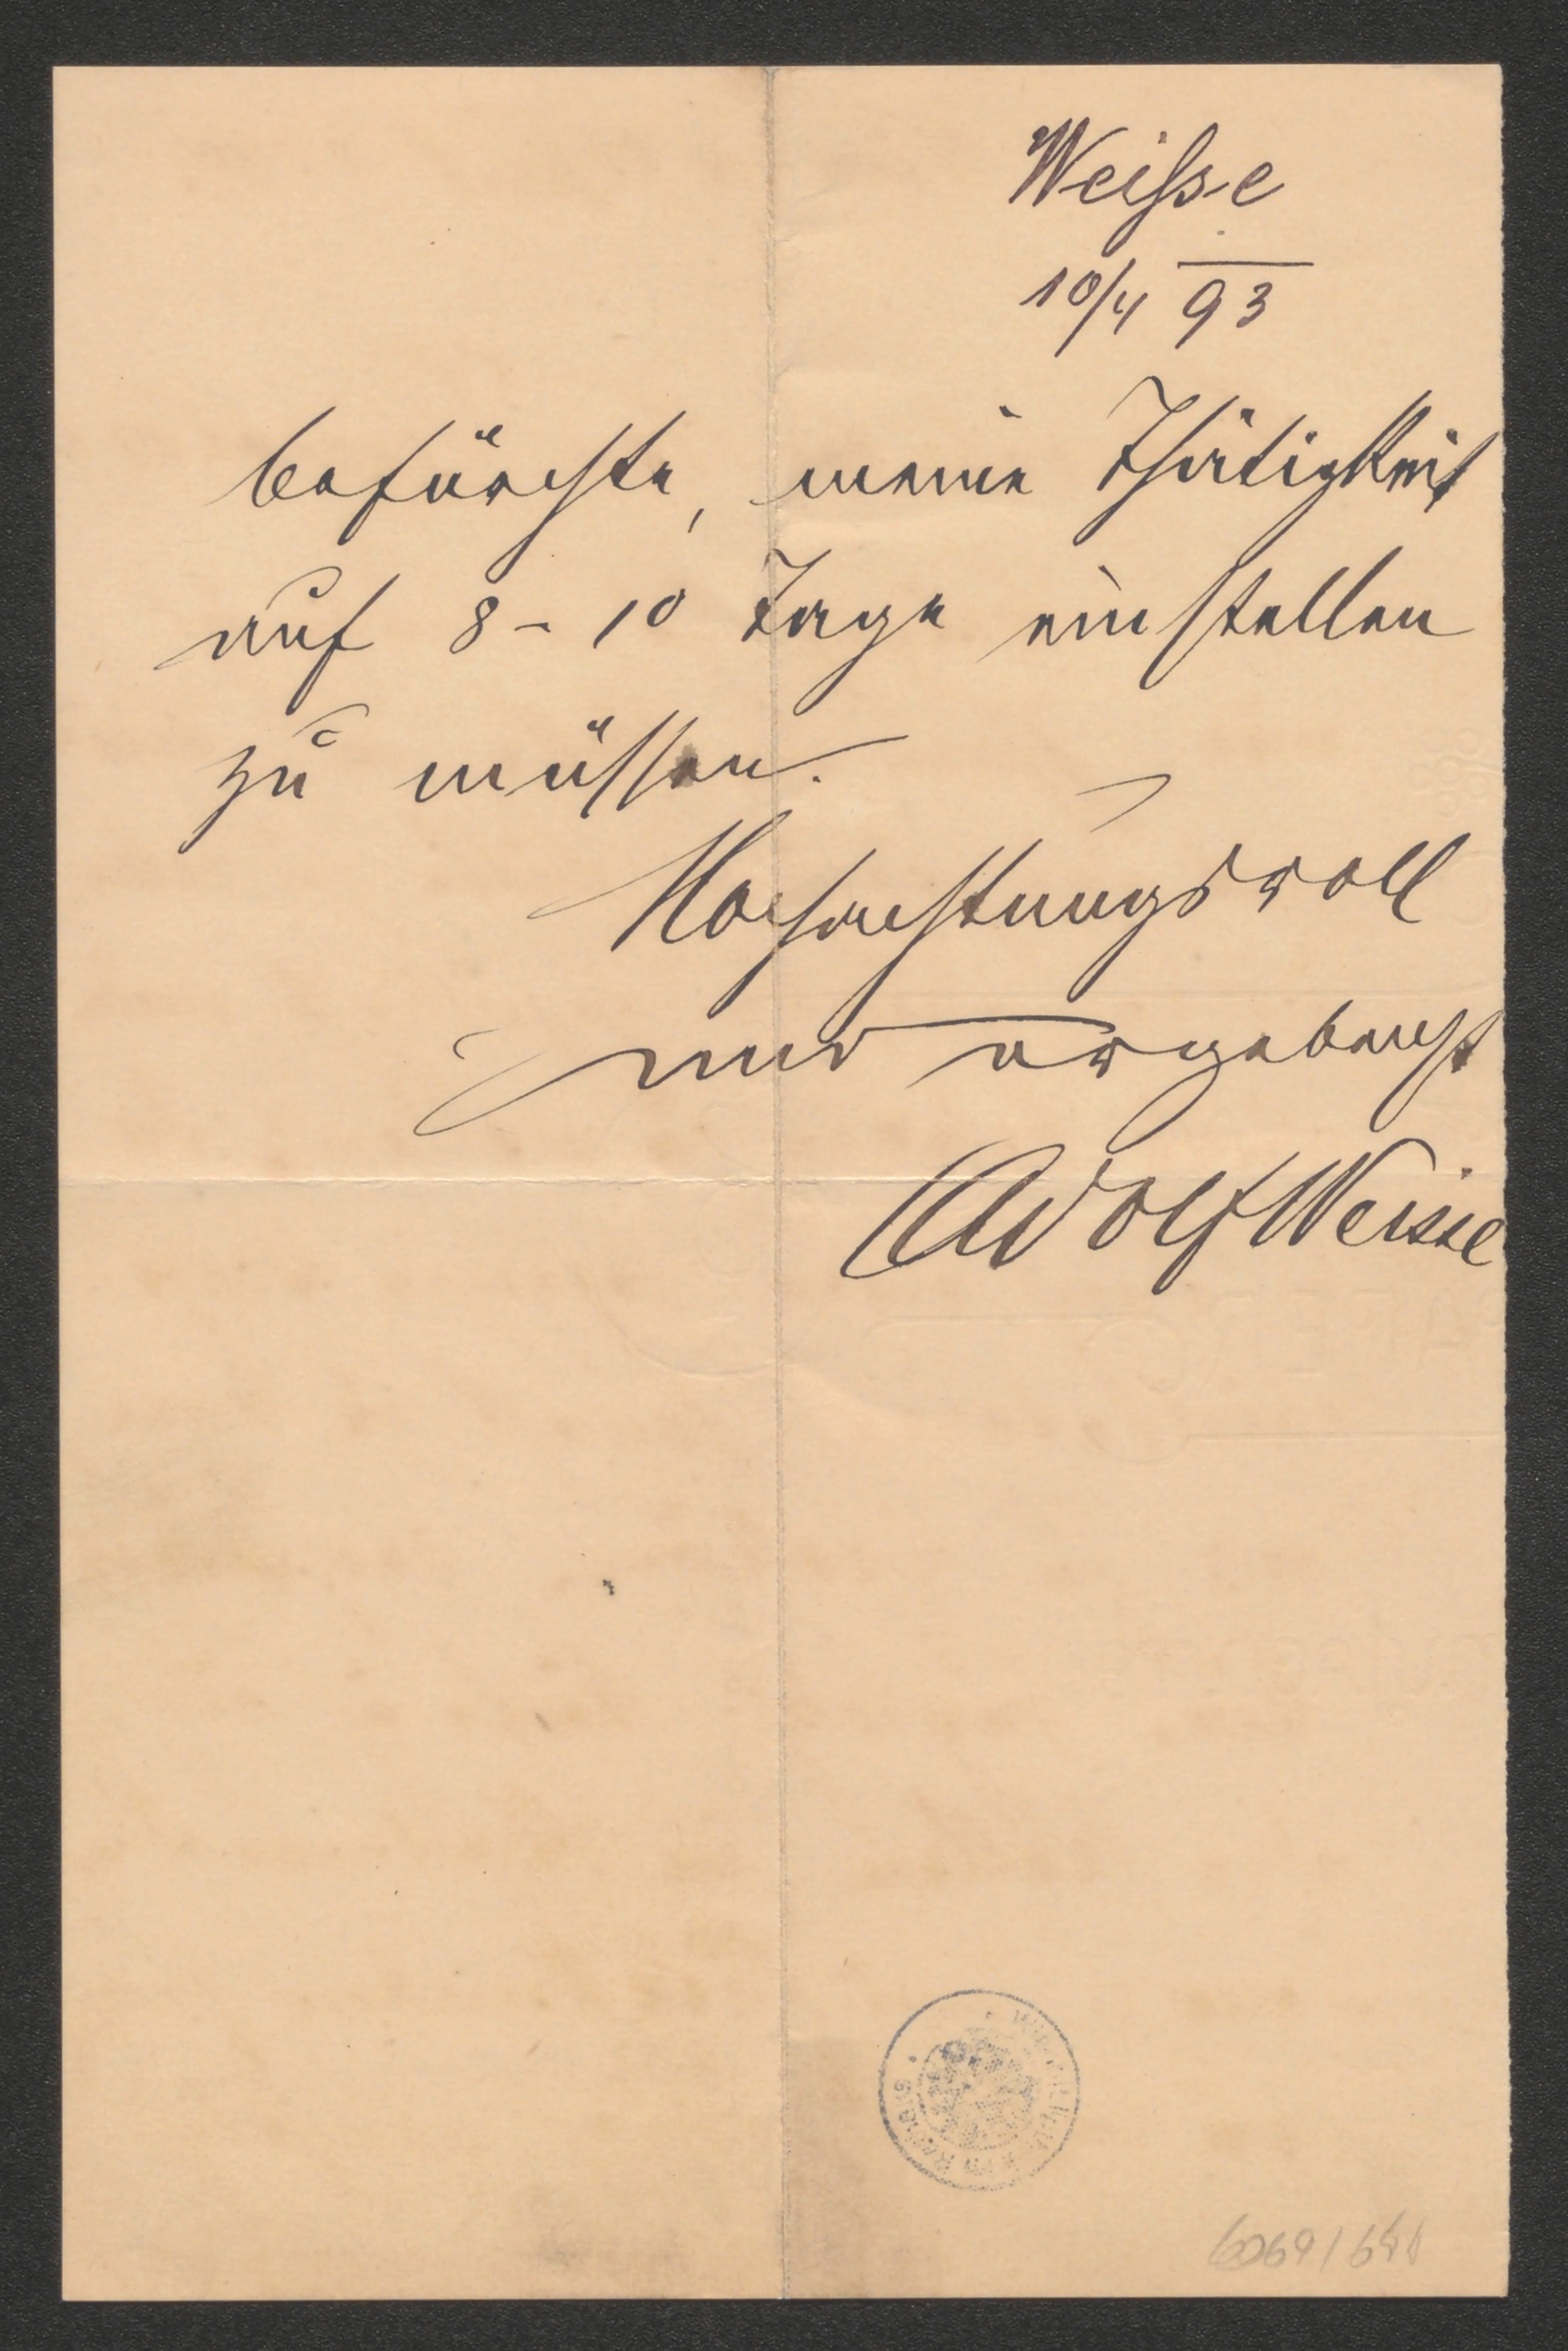 Weisse
10/4 93
befürchte, meine Thätigkeit
auf 8 - 10 Tage einstellen
zu müssen.
Hochachtungsvoll
und ergebenst
Adolf Weisse